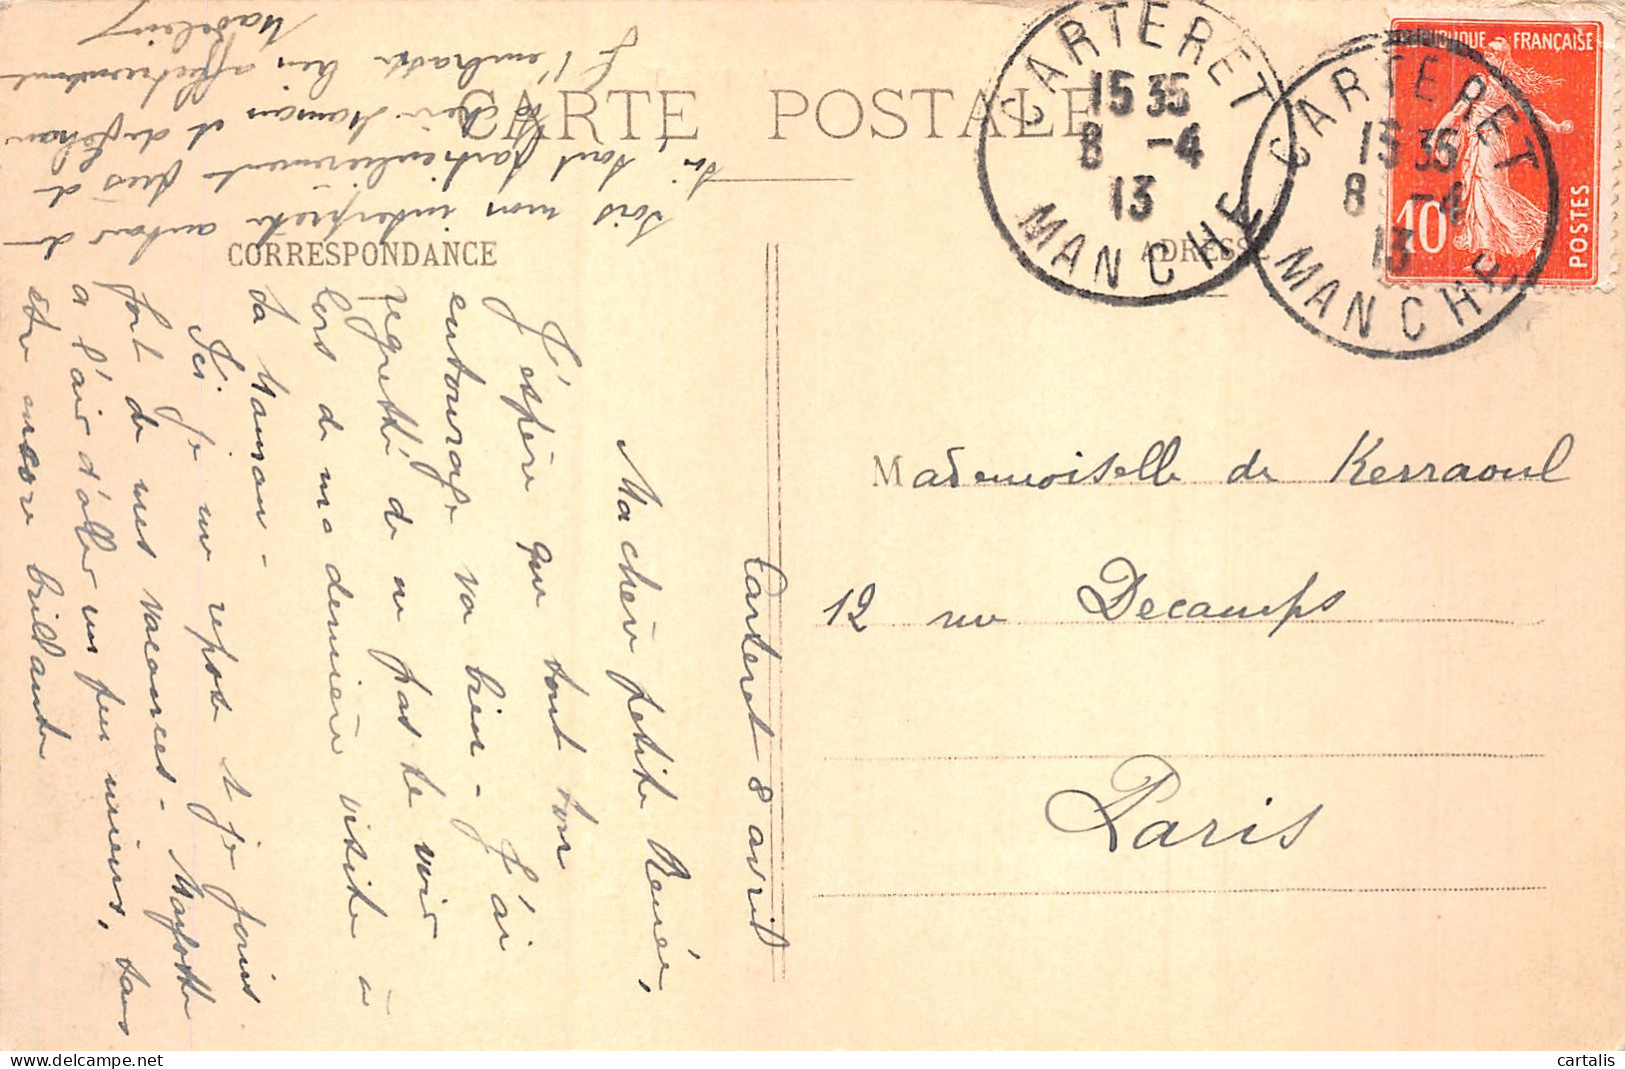 CARTE POSTALE
CORRESPONDANCE
ADRESSE
CARTERET
15 35
8 -4
13
MANCHE
CARTERET
15 35
8 -4
13
MANCHE
RÉPUBLIQUE FRANÇAISE
10
POSTES
Mademoiselle de Kerraoul
12 rue Decamps
Paris
Carteret 8 avril
Ma chère petite Renée,
J'espère que tout ton
entourage va bien - J'ai
regretté de ne pas te voir
lors de ma dernière visite à
ta Maman -
Ici je me repose & je jouis
fort de mes vacances - Mayotte
a l'air d'aller un peu mieux, sans
être encore brillante
Sois mon interprète autour de
toi tout particulièrement près de
ta chère Maman et de
& t'embrasse bien affectueusement
Madeleine
cartalis